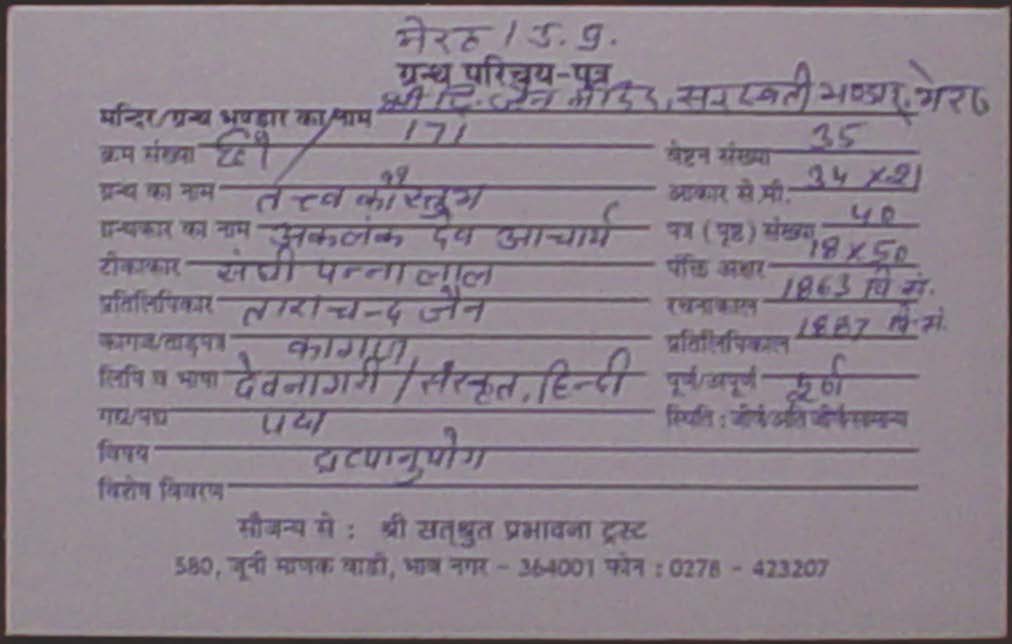 मेरठ / उ.प्र.
ग्रन्थ परिचय-पत्र
मन्दिर/ग्रन्थ भण्डार का नाम श्री दि. जैन मंदिर, सरस्वती भण्डार, मेरठ
क्रम संख्या / 171 वेष्टन संख्या 35
ग्रन्थ का नाम तत्त्व कौस्तुभ आकार से.मी. 34 x 21
ग्रन्थकार का नाम अकलंक देव आचार्य पत्र (पृष्ठ) संख्या 40
टीकाकार संघी पन्नालाल पंक्ति अक्षर 18 x 50
प्रतिलिपिकार ताराचन्द जैन रचनाकाल 1863 वि सं.
कागज/ताड़पत्र कागज प्रतिलिपिकाल वि. सं.
लिपि व भाषा देवनागरी / संस्कृत, हिन्दी पूर्ण/अपूर्ण पूर्ण
गद्य/पद्य पद्य स्थिति : जीर्ण/अति जीर्ण/सामान्य
विषय द्रव्यानुयोग
विशेष विवरण
सौजन्य से : श्री सत्श्रुत प्रभावना ट्रस्ट
580, जूनी माणक वाडी, भाव नगर - 364001 फोन : 0278 - 423207